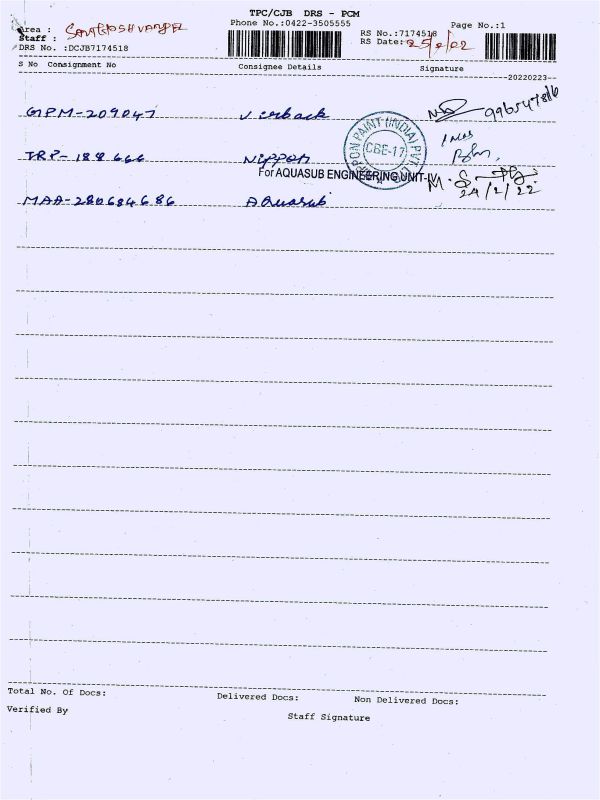 TPC/CJB DRS - PCM
Phone No.:0422-3505555
Page No.:1
Area :
Staff :
RS No.:7174518
DRS No. :DCJB7174518
RS Date:
S No Consignment No Consignee Details Signature
--20220223--
GPM-209047
TRP-188666 Nippon
NIPPON PAINT (INDIA) PVT. L
CBE-17
For AQUASUB ENGINEERING UNIT-IV
MAA-280684686 Aquasub
Total No. Of Docs: Delivered Docs: Non Delivered Docs:
Verified By Staff Signature